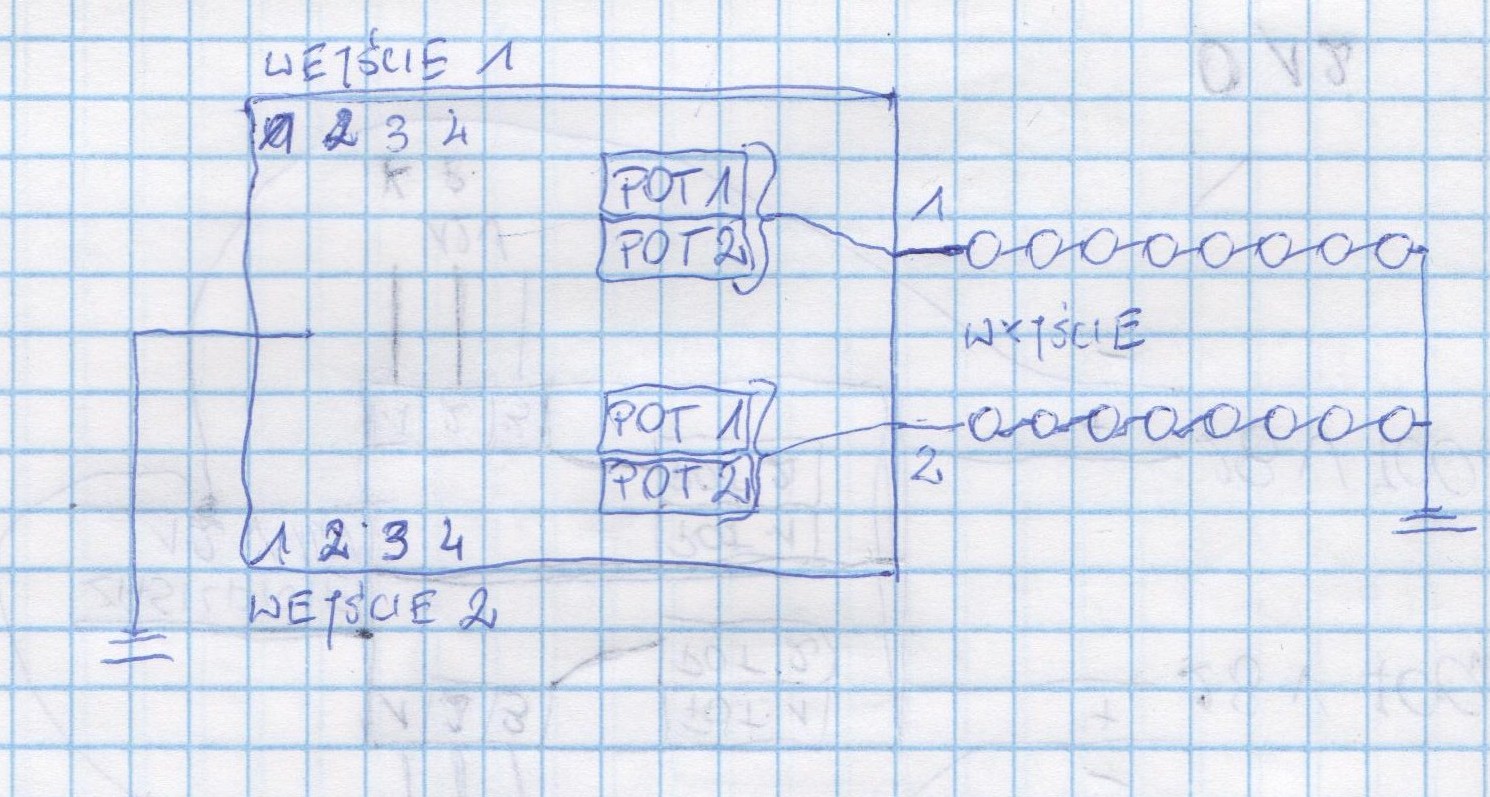 WEJŚCIE 1
1 2 3 4
POT 1
POT 2
1
WYJŚCIE
POT 1
POT 2
2
1 2 3 4
WEJŚCIE 2